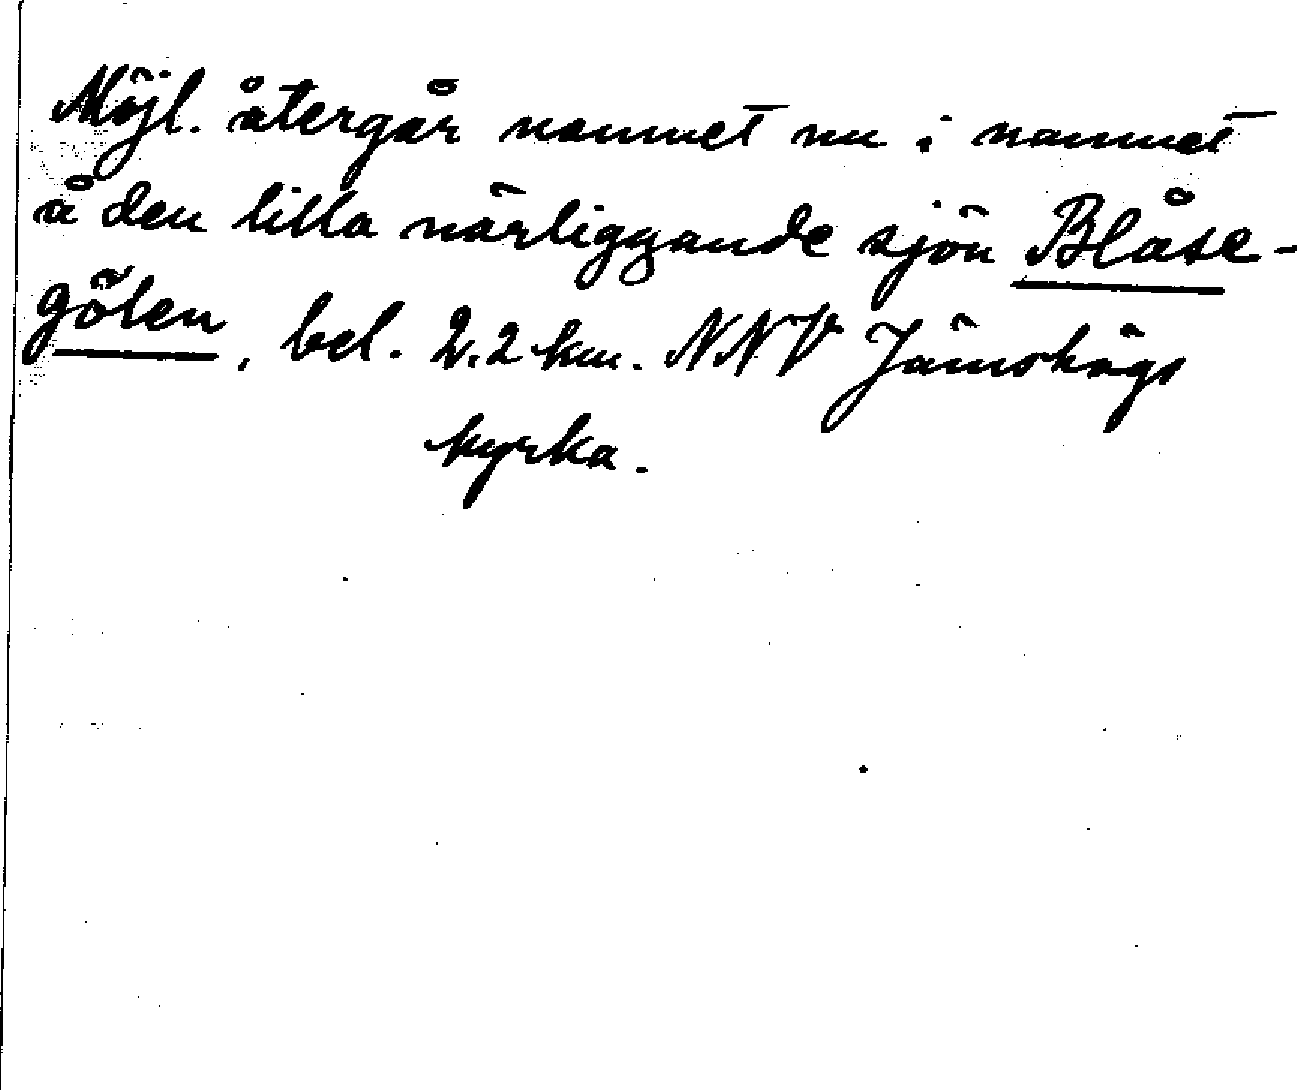 Möjl. återgår namnet nu i namnet
å den lilla närliggande sjön Blåse-
gölen, bel. 2.2 km. NNV Jämshögs
kyrka.